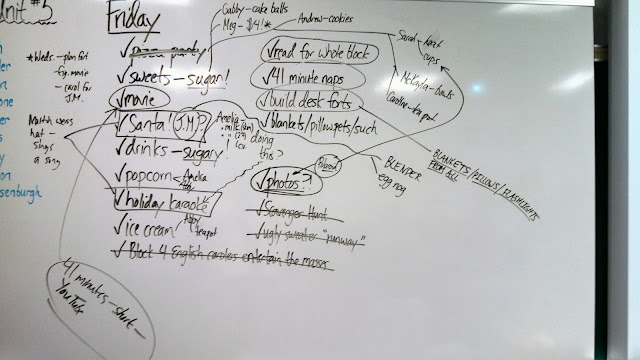 Unit #5
Friday
Gabby-cake balls
Meg-$4!*
Andrew-cookies
*Weds.-plan fort
-fig. movie
-carol for J.M.
✓pizza party
✓sweets-sugar!
✓movie
✓Santa! (J.M.?)
✓drinks-sugary
✓popcorn
✓holiday karaoke
✓ice cream
teapot
✓Block 4 English caroles entertain the masses
Amelia
doing this?
✓read for whole block
✓41 minute naps
✓build desk forts
✓blankets/pillowpets/such
✓photos?!
✓Scavenger Hunt
✓ugly sweater "runway"
Sarah-heat
cups
McKayla-bowls
Caroline-tea pot
BLENDER
egg nog
BLANKETS/PILLOWS/FLASHLIGHTS
FROM ALL
hat-
sings
a song
41 minutes-short-
YouTube
senburgh